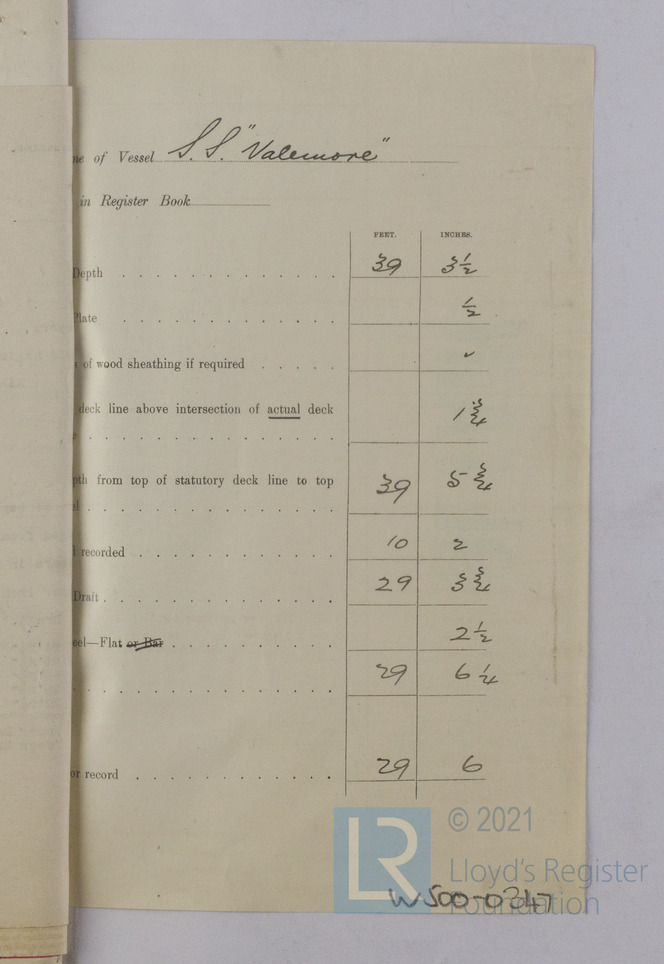 of Vessel S.S. "Valemore"
in Register Book
FEET. INCHES.
Depth . . . . . . . . . . . . . 39 3½
Plate . . . . . . . . . . . . . ½
of wood sheathing if required . . . . . ✓
deck line above intersection of actual deck 1¾
. . . . . . . . . . . . . .
from top of statutory deck line to top 39 5¾
. . . . . . . . . . . . . .
recorded . . . . . . . . . . . . 10 2
Draft . . . . . . . . . . . . . 29 3¾
—Flat or Bar . . . . . . . . . . 2½
. . . . . . . . . . . . . . 29 6¼
record . . . . . . . . . . . . 29 6
© 2021
LR Lloyd's Register
Foundation
W500-0347